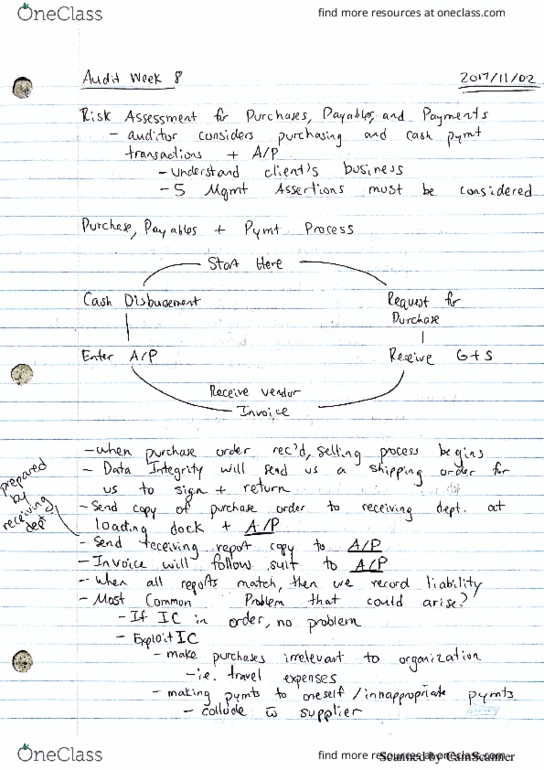 OneClass
find more resources at oneclass.com
Audit Week 8
2017/11/02
Risk Assessment for Purchases, Payables, and Payments
- auditor considers purchasing and cash pymt
transactions + A/P
- understand client's business
- 5 Mgmt Assertions must be considered
Purchase, Payables + Pymt Process
Start Here
Cash Disbursement
Request for
Purchase
Enter A/P
Receive G+S
Receive vendor
Invoice
- when purchase order rec'd, selling process begins
- Data Integrity will send us a shipping order for
us to sign + return
- Send copy of purchase order to receiving dept. at
loading dock + A/P
prepared
by
receiving
dept.
- Send receiving report copy to A/P
- Invoice will follow suit to A/P
- When all reports match, then we record liability
- Most Common Problem that could arise?
- If IC in order, no problem
- Exploit IC
- make purchases irrelevant to organization
- i.e. travel expenses
- making pymts to oneself/innappropriate pymts
- collude w̄ supplier
OneClass
find more resources at oneclass.com
Scanned by CamScanner